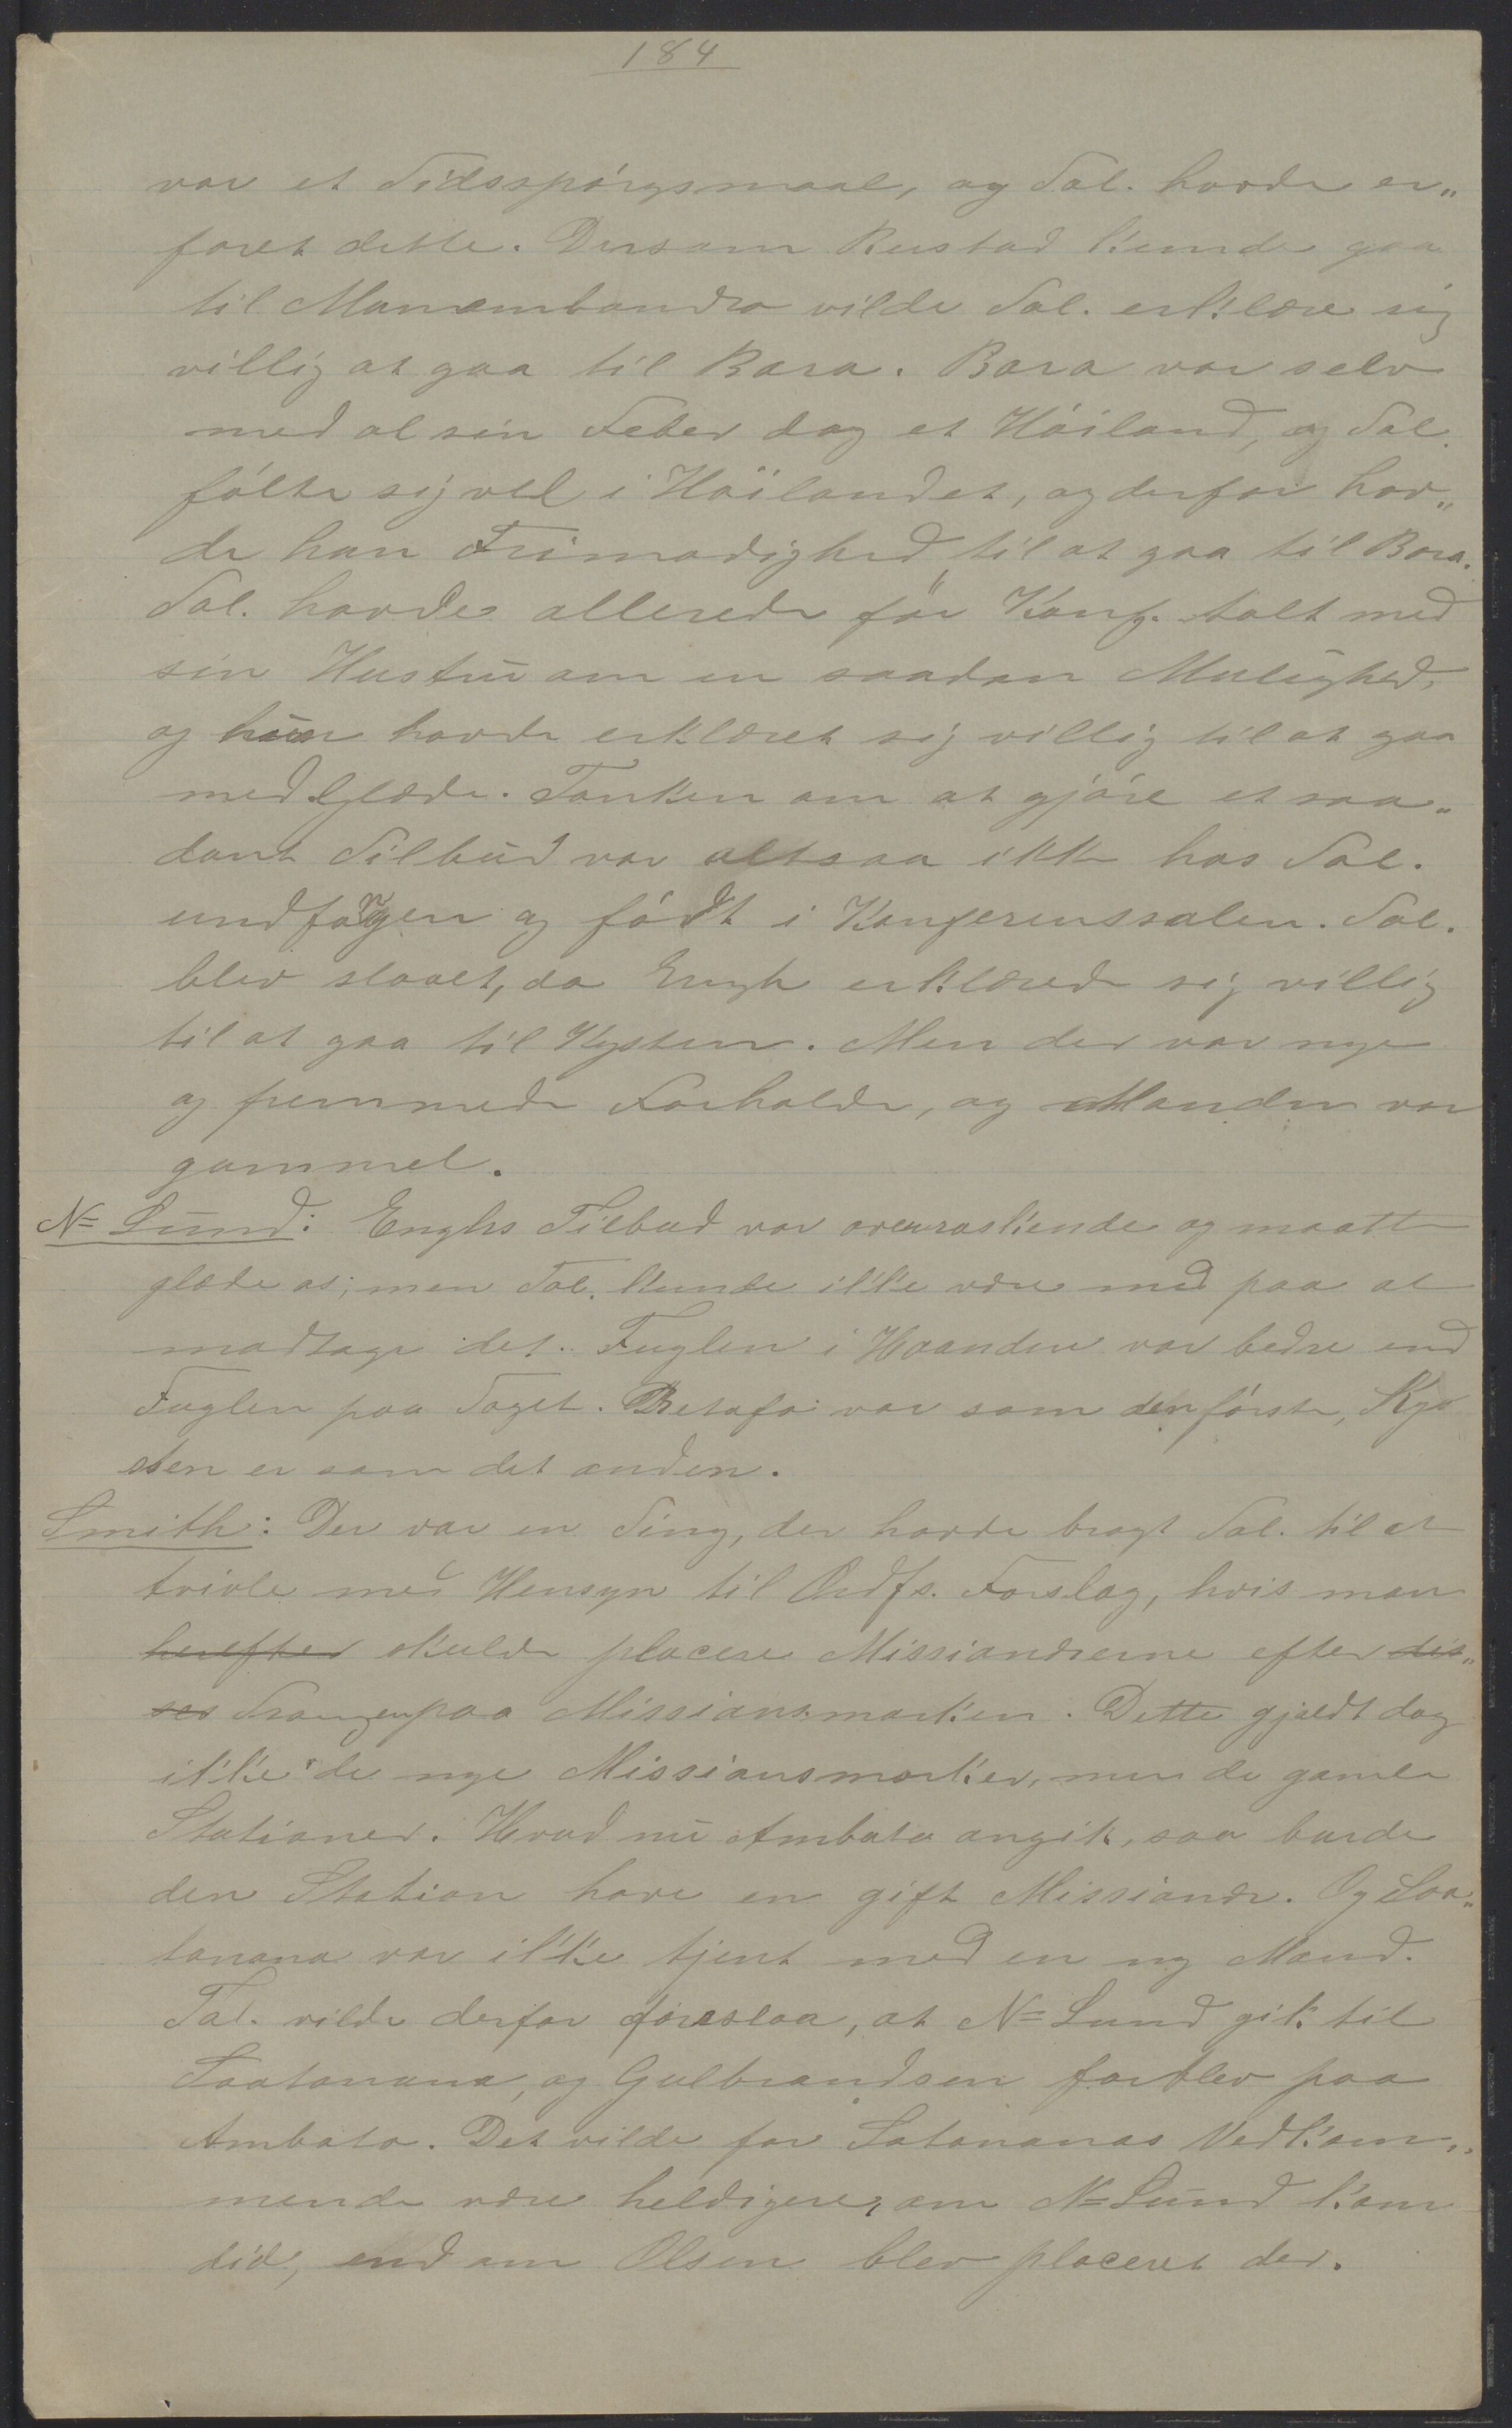 184
var et Tidsspórgsmaal, og Tal. havde er„
faret dette. Dersom Rustad kunde gaa
til Manambondro vilde Tal. erklære sig
villig at gaa til Bara. Bara var selv
med al sin Feber dog et Hóiland, og Tal.
fólte sig vel i Höilandet, og derfor hav„
de han Frimodighed til at gaa til Bara.
Tal. havde allerede för Konf. talt med
sin Hustrū om en saadan Mulighed,
og hūn havde erklæret sig villig til at gaa
med Glæde. Tanken om at gjóre et saa„
dant Tilbūd var altsaa ikke hos Tal.
undfangen og fódt i Konferenssalen. Tal.
blev slaaet, da Engh erklærede sig villig
til at gaa til Kysten. Men der var nye
og fremmede Forholde, og Manden var
gammel.
N= Lūnd: Enghs Tilbud var overraskende og maatte
glæde os; men Tal. kunde ikke være med paa at
modtage det. Fuglen i Haanden var bedre end
Fuglen paa Taget. Betafo var som den förste, Ky
sten er som det anden.
Smith: Der var en Ting, der havde bragt Tal. til at
tvivle med Hensyn til Ordfs. Forslag, hvis man
herefter skulde placere Missionærerne efter dis„
ses Trangen paa Missionsmarken. Dette gjældt dog
ikke de nye Missionsmarker, men de gamle
Stationer. Hvad nū Ambato angik, saa burde
den Station have en gift Missionær. Og Soa„
tanana var ikke tjent med en ny Mand.
Tal. vilde derfor foreslaa, at N= Lund gik til
Soatanana, og Gulbrandsen forblev paa
Ambato. Det vilde for Satananas Vedkom„
mende være heldigere, om N= Lūnd kom
did, end om Olsen blev placeret der.